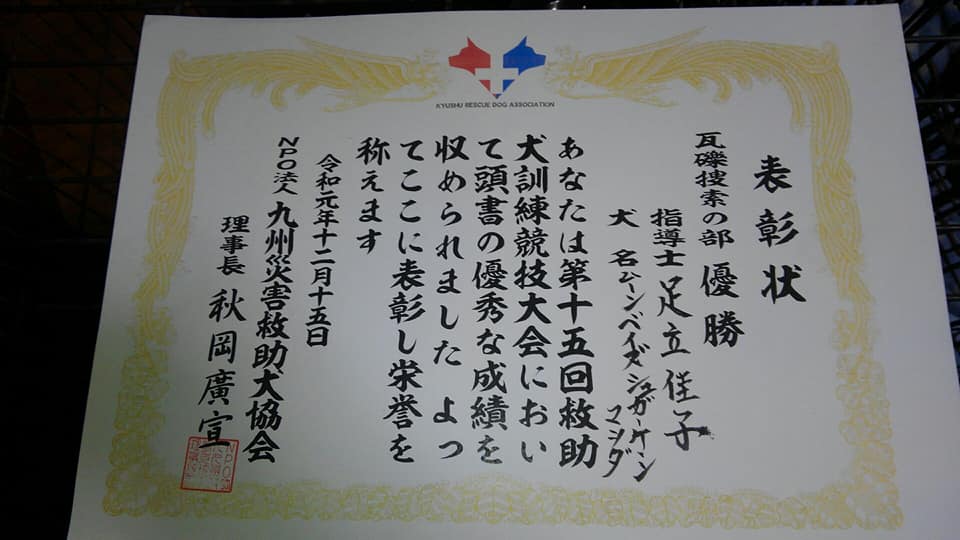 KYUSHU RESCUE DOG ASSOCIATION
表彰状
瓦礫捜索の部 優勝
指導士 足立佳子
犬 名 ムーンベイダシュガーケーン
マンダ
あなたは第十五回救助
犬訓練競技大会におい
て頭書の優秀な成績を
収められました よっ
てここに表彰し栄誉を
称えます
令和元年十二月十五日
NPO法人 九州災害救助犬協会
理事長 秋岡廣宣